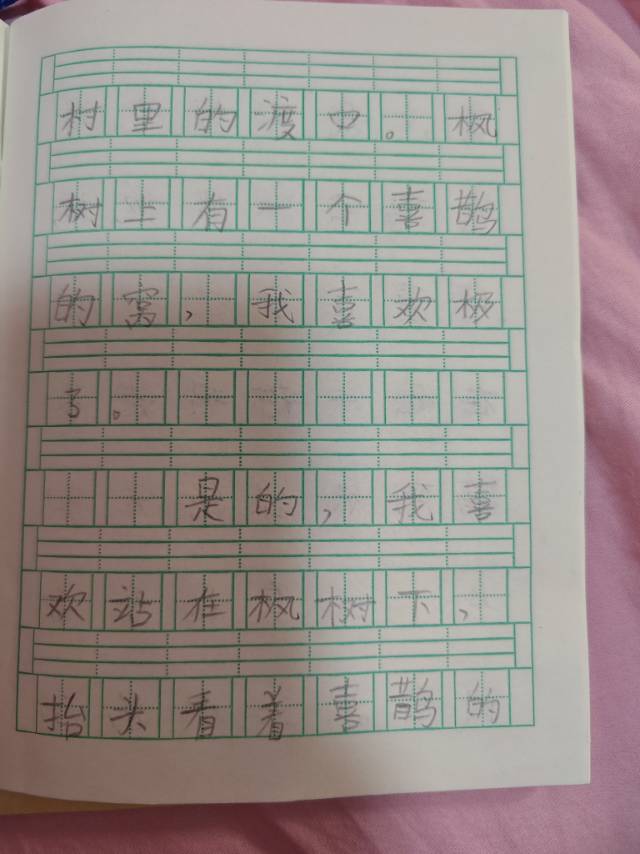 村里的渡口。枫
树上有一个喜鹊
的窝，我喜欢极
了。
是的，我喜
欢站在枫树下，
抬头看着喜鹊的